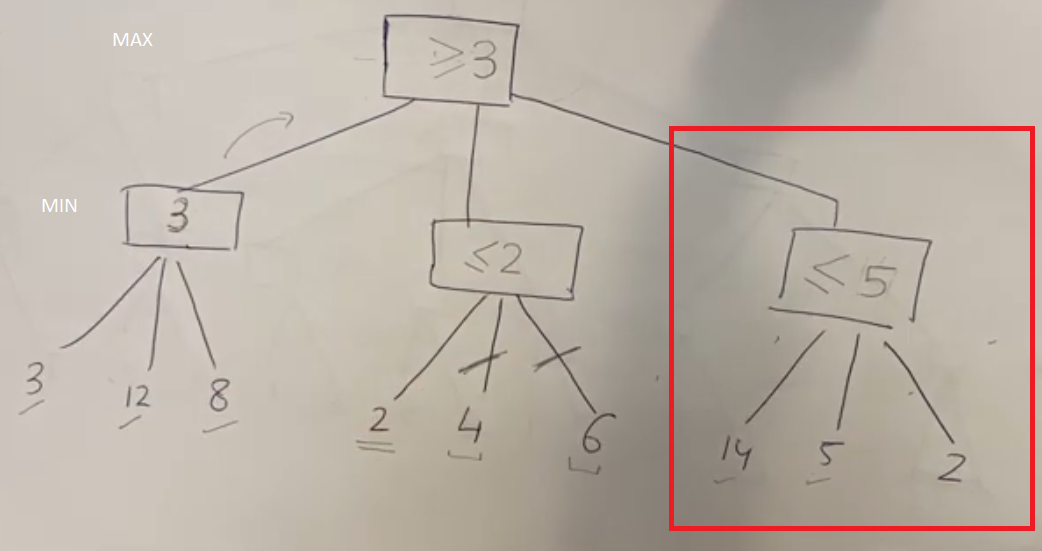 MAX
≥3
MIN
3
≤2
≤ 5
3 12 8
2 4 6
14 5 2